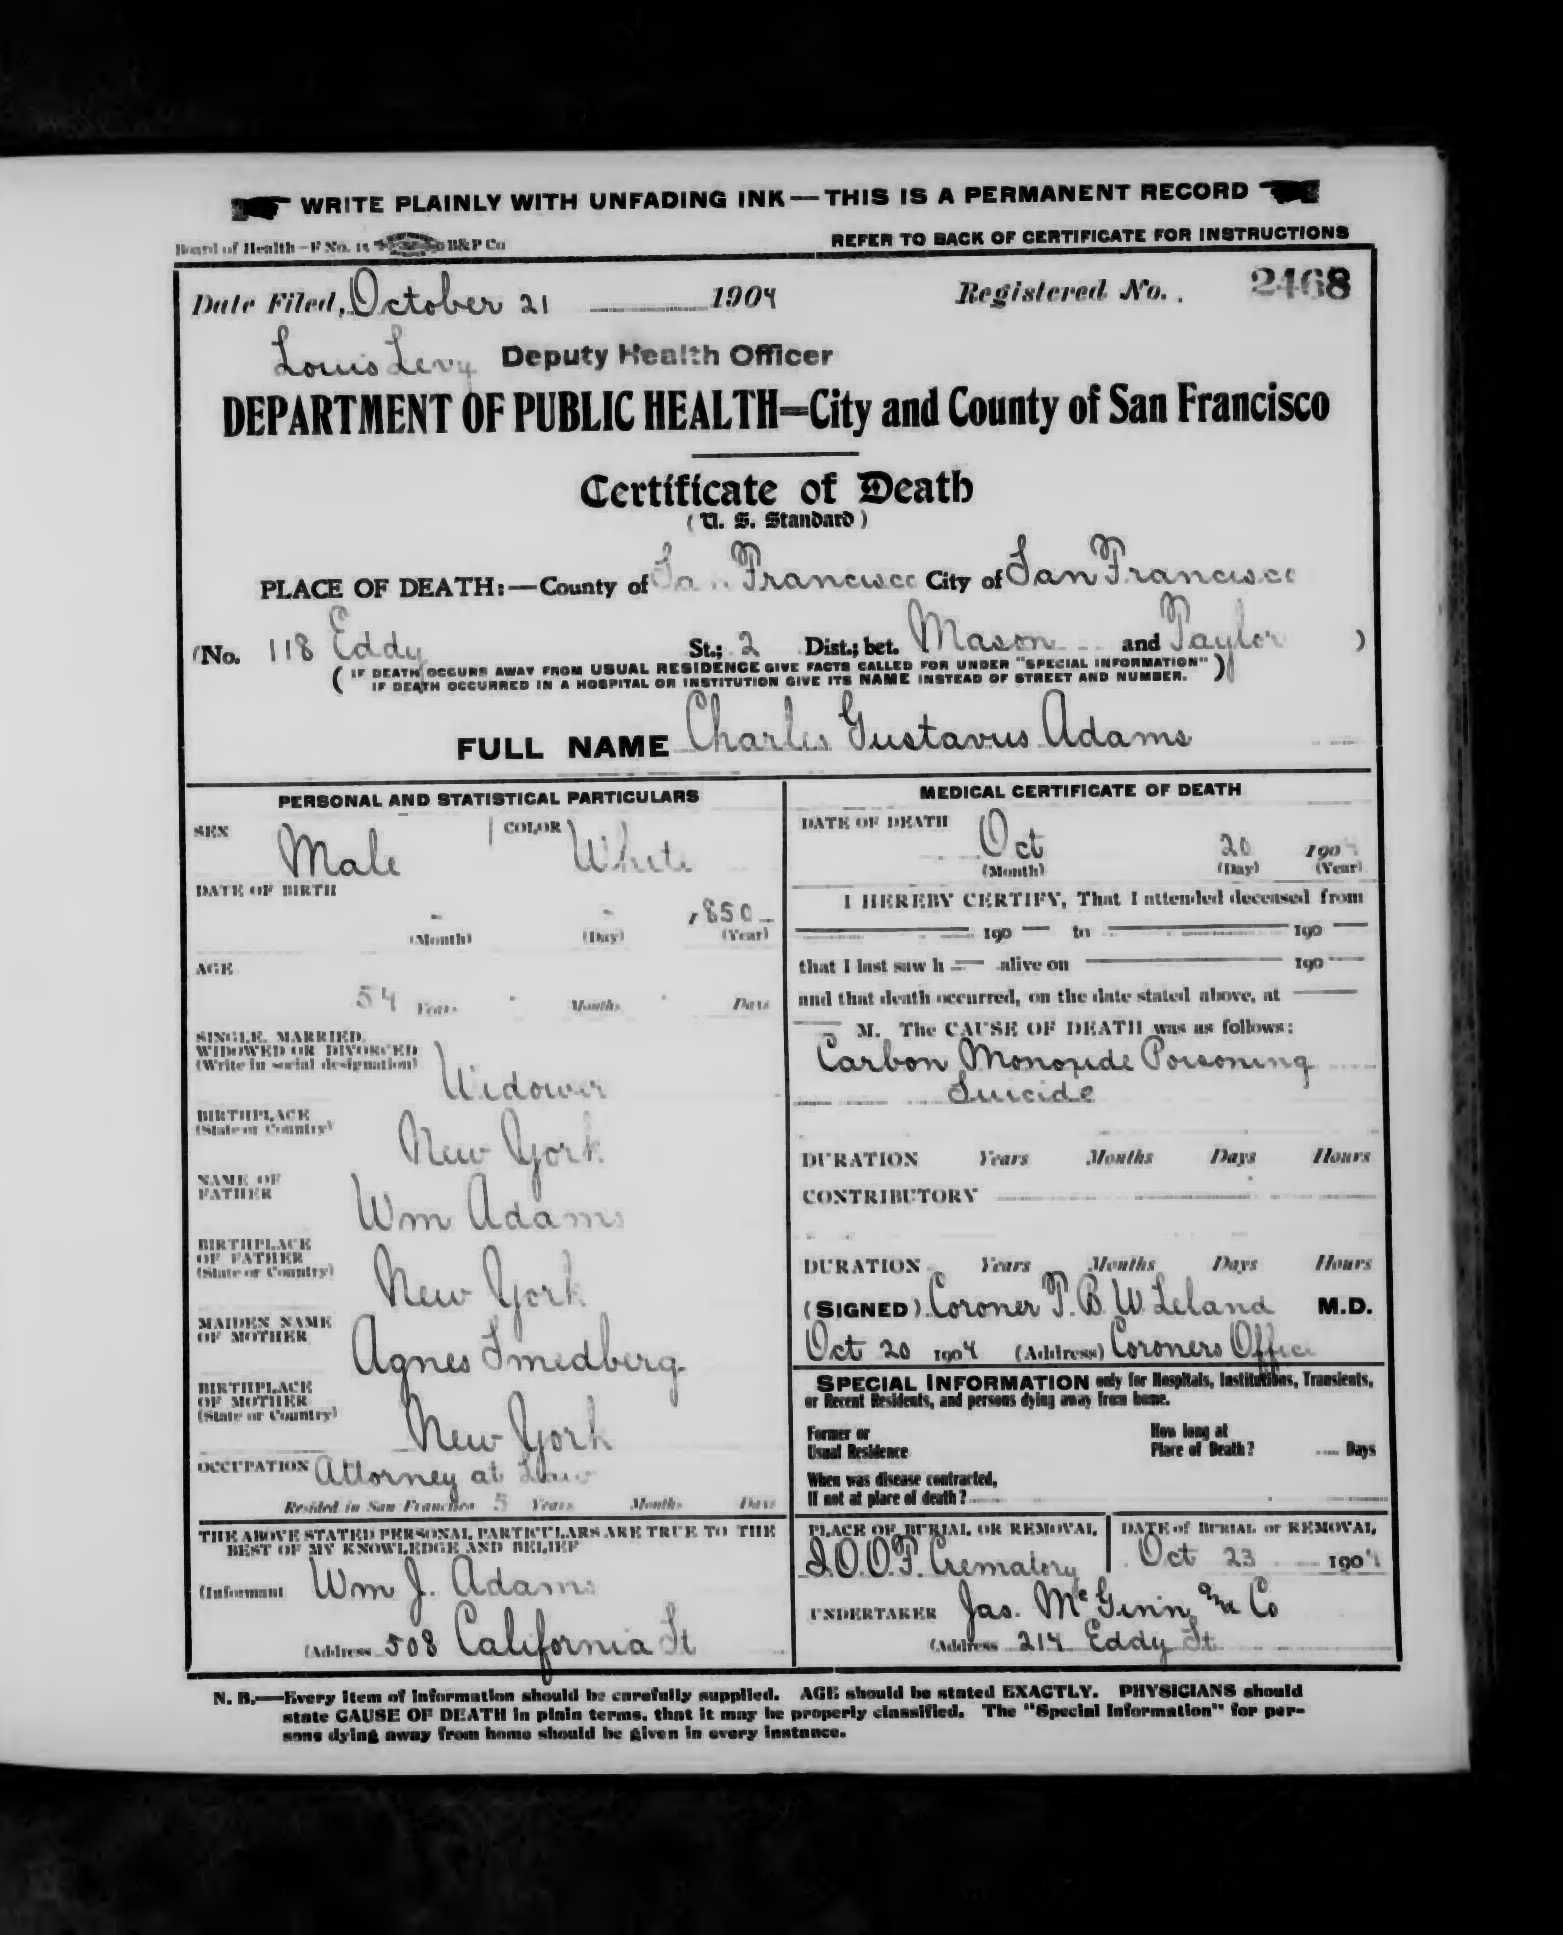 WRITE PLAINLY WITH UNFADING INK — THIS IS A PERMANENT RECORD
Board of Health—F No. 15 B&P Co
REFER TO BACK OF CERTIFICATE FOR INSTRUCTIONS
Date Filed, October 21 1904 Registered No. 2468
Louis Levy Deputy Health Officer
DEPARTMENT OF PUBLIC HEALTH=City and County of San Francisco
Certificate of Death
(U. S. Standard)
PLACE OF DEATH:—County of San Francisco City of San Francisco
(No. 118 Eddy St.; 2 Dist.; bet. Mason and Taylor )
( IF DEATH OCCURS AWAY FROM USUAL RESIDENCE GIVE FACTS CALLED FOR UNDER "SPECIAL INFORMATION" )
IF DEATH OCCURRED IN A HOSPITAL OR INSTITUTION GIVE ITS NAME INSTEAD OF STREET AND NUMBER.
FULL NAME Charles Gustavus Adams
PERSONAL AND STATISTICAL PARTICULARS
SEX Male COLOR White
DATE OF BIRTH
- - 1850
(Month) (Day) (Year)
AGE
54 Years Months Days
SINGLE, MARRIED,
WIDOWED OR DIVORCED
(Write in social designation) Widower
BIRTHPLACE
(State or Country) New York
NAME OF
FATHER Wm Adams
BIRTHPLACE
OF FATHER
(State or Country) New York
MAIDEN NAME
OF MOTHER Agnes Smedberg
BIRTHPLACE
OF MOTHER
(State or Country) New York
OCCUPATION Attorney at Law
Resided in San Francisco 5 Years Months Days
THE ABOVE STATED PERSONAL PARTICULARS ARE TRUE TO THE
BEST OF MY KNOWLEDGE AND BELIEF
(Informant Wm J. Adams
(Address 508 California St
MEDICAL CERTIFICATE OF DEATH
DATE OF DEATH Oct 20 1904
(Month) (Day) (Year)
I HEREBY CERTIFY, That I attended deceased from
190 to 190
that I last saw h alive on 190
and that death occurred, on the date stated above, at
M. The CAUSE OF DEATH was as follows:
Carbon Monoxide Poisoning
Suicide
DURATION Years Months Days Hours
CONTRIBUTORY
DURATION Years Months Days Hours
(SIGNED) Coroner T. B. W Leland M.D.
Oct 20 1904 (Address) Coroners Office
SPECIAL INFORMATION only for Hospitals, Institutions, Transients,
or Recent Residents, and persons dying away from home.
Former or
Usual Residence
How long at
Place of Death? Days
When was disease contracted,
If not at place of death?
PLACE OF BURIAL OR REMOVAL
I.O.O.F. Crematory
DATE of BURIAL or REMOVAL
Oct 23 1904
UNDERTAKER Jas. McGinn & Co
(Address 214 Eddy St.
N. B.—Every item of information should be carefully supplied. AGE should be stated EXACTLY. PHYSICIANS should
state CAUSE OF DEATH in plain terms, that it may be properly classified. The "Special Information" for per-
sons dying away from home should be given in every instance.